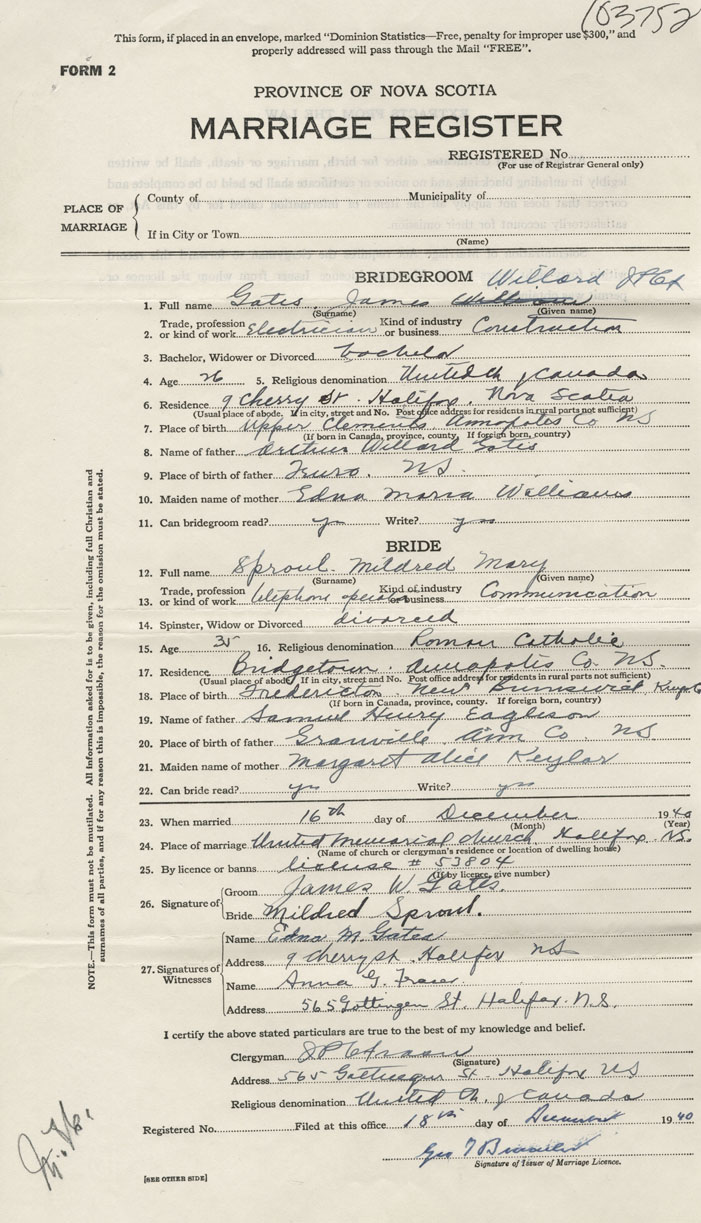 03752
This form, if placed in an envelope, marked "Dominion Statistics—Free, penalty for improper use $300," and
properly addressed will pass through the Mail "FREE".
FORM 2
PROVINCE OF NOVA SCOTIA
MARRIAGE REGISTER
REGISTERED No.
(For use of Registrar General only)
PLACE OF MARRIAGE
County of Municipality of
If in City or Town
(Name)
BRIDEGROOM Willard
1. Full name Gates James
(Surname) (Given name)
2. Trade, profession or kind of work Electrician Kind of industry or business Construction
3. Bachelor, Widower or Divorced bachelor
4. Age 26 5. Religious denomination United Ch of Canada
6. Residence 9 Cherry St. Halifax, Nova Scotia
(Usual place of abode. If in city, street and No. Post office address for residents in rural parts not sufficient)
7. Place of birth Upper Clements Annapolis Co NS
(If born in Canada, province, county. If foreign born, country)
8. Name of father Arthur Willard Gates
9. Place of birth of father Truro. NS.
10. Maiden name of mother Edna Maria Williams
11. Can bridegroom read? yes Write? yes
BRIDE
12. Full name Sproul. Mildred Mary
(Surname) (Given name)
13. Trade, profession or kind of work telephone operator Kind of industry or business Communication
14. Spinster, Widow or Divorced divorced
15. Age 35 16. Religious denomination Roman Catholic
17. Residence Bridgetown. Annapolis Co. NS.
(Usual place of abode. If in city, street and No. Post office address for residents in rural parts not sufficient)
18. Place of birth Fredericton New Brunswick
(If born in Canada, province, county. If foreign born, country)
19. Name of father Samuel Henry Eagleson
20. Place of birth of father Granville Ann Co NS.
21. Maiden name of mother Margaret Alice Keylor
22. Can bride read? yes Write? yes
23. When married 16th day of December 1940
(Month) (Year)
24. Place of marriage United Memorial church, Halifax. NS.
(Name of church or clergyman's residence or location of dwelling house)
25. By licence or banns license # 53804
(If by licence, give number)
26. Signature of
Groom James W. Gates.
Bride Mildred Sproul.
27. Signatures of Witnesses
Name Edna M. Gates
Address 9 Cherry St. Halifax NS
Name Anna G.
Address 565 Gottingen St. Halifax. N.S.
I certify the above stated particulars are true to the best of my knowledge and belief.
Clergyman
(Signature)
Address 565 Gottingen St. Halifax NS
Religious denomination United Ch. of Canada
Registered No. Filed at this office 18th day of December 1940
Geo
Signature of Issuer of Marriage Licence.
[SEE OTHER SIDE]
NOTE.—This form must not be mutilated. All information asked for is to be given, including full Christian and
surnames of all parties, and if for any reason this is impossible, the reason for the omission must be stated.